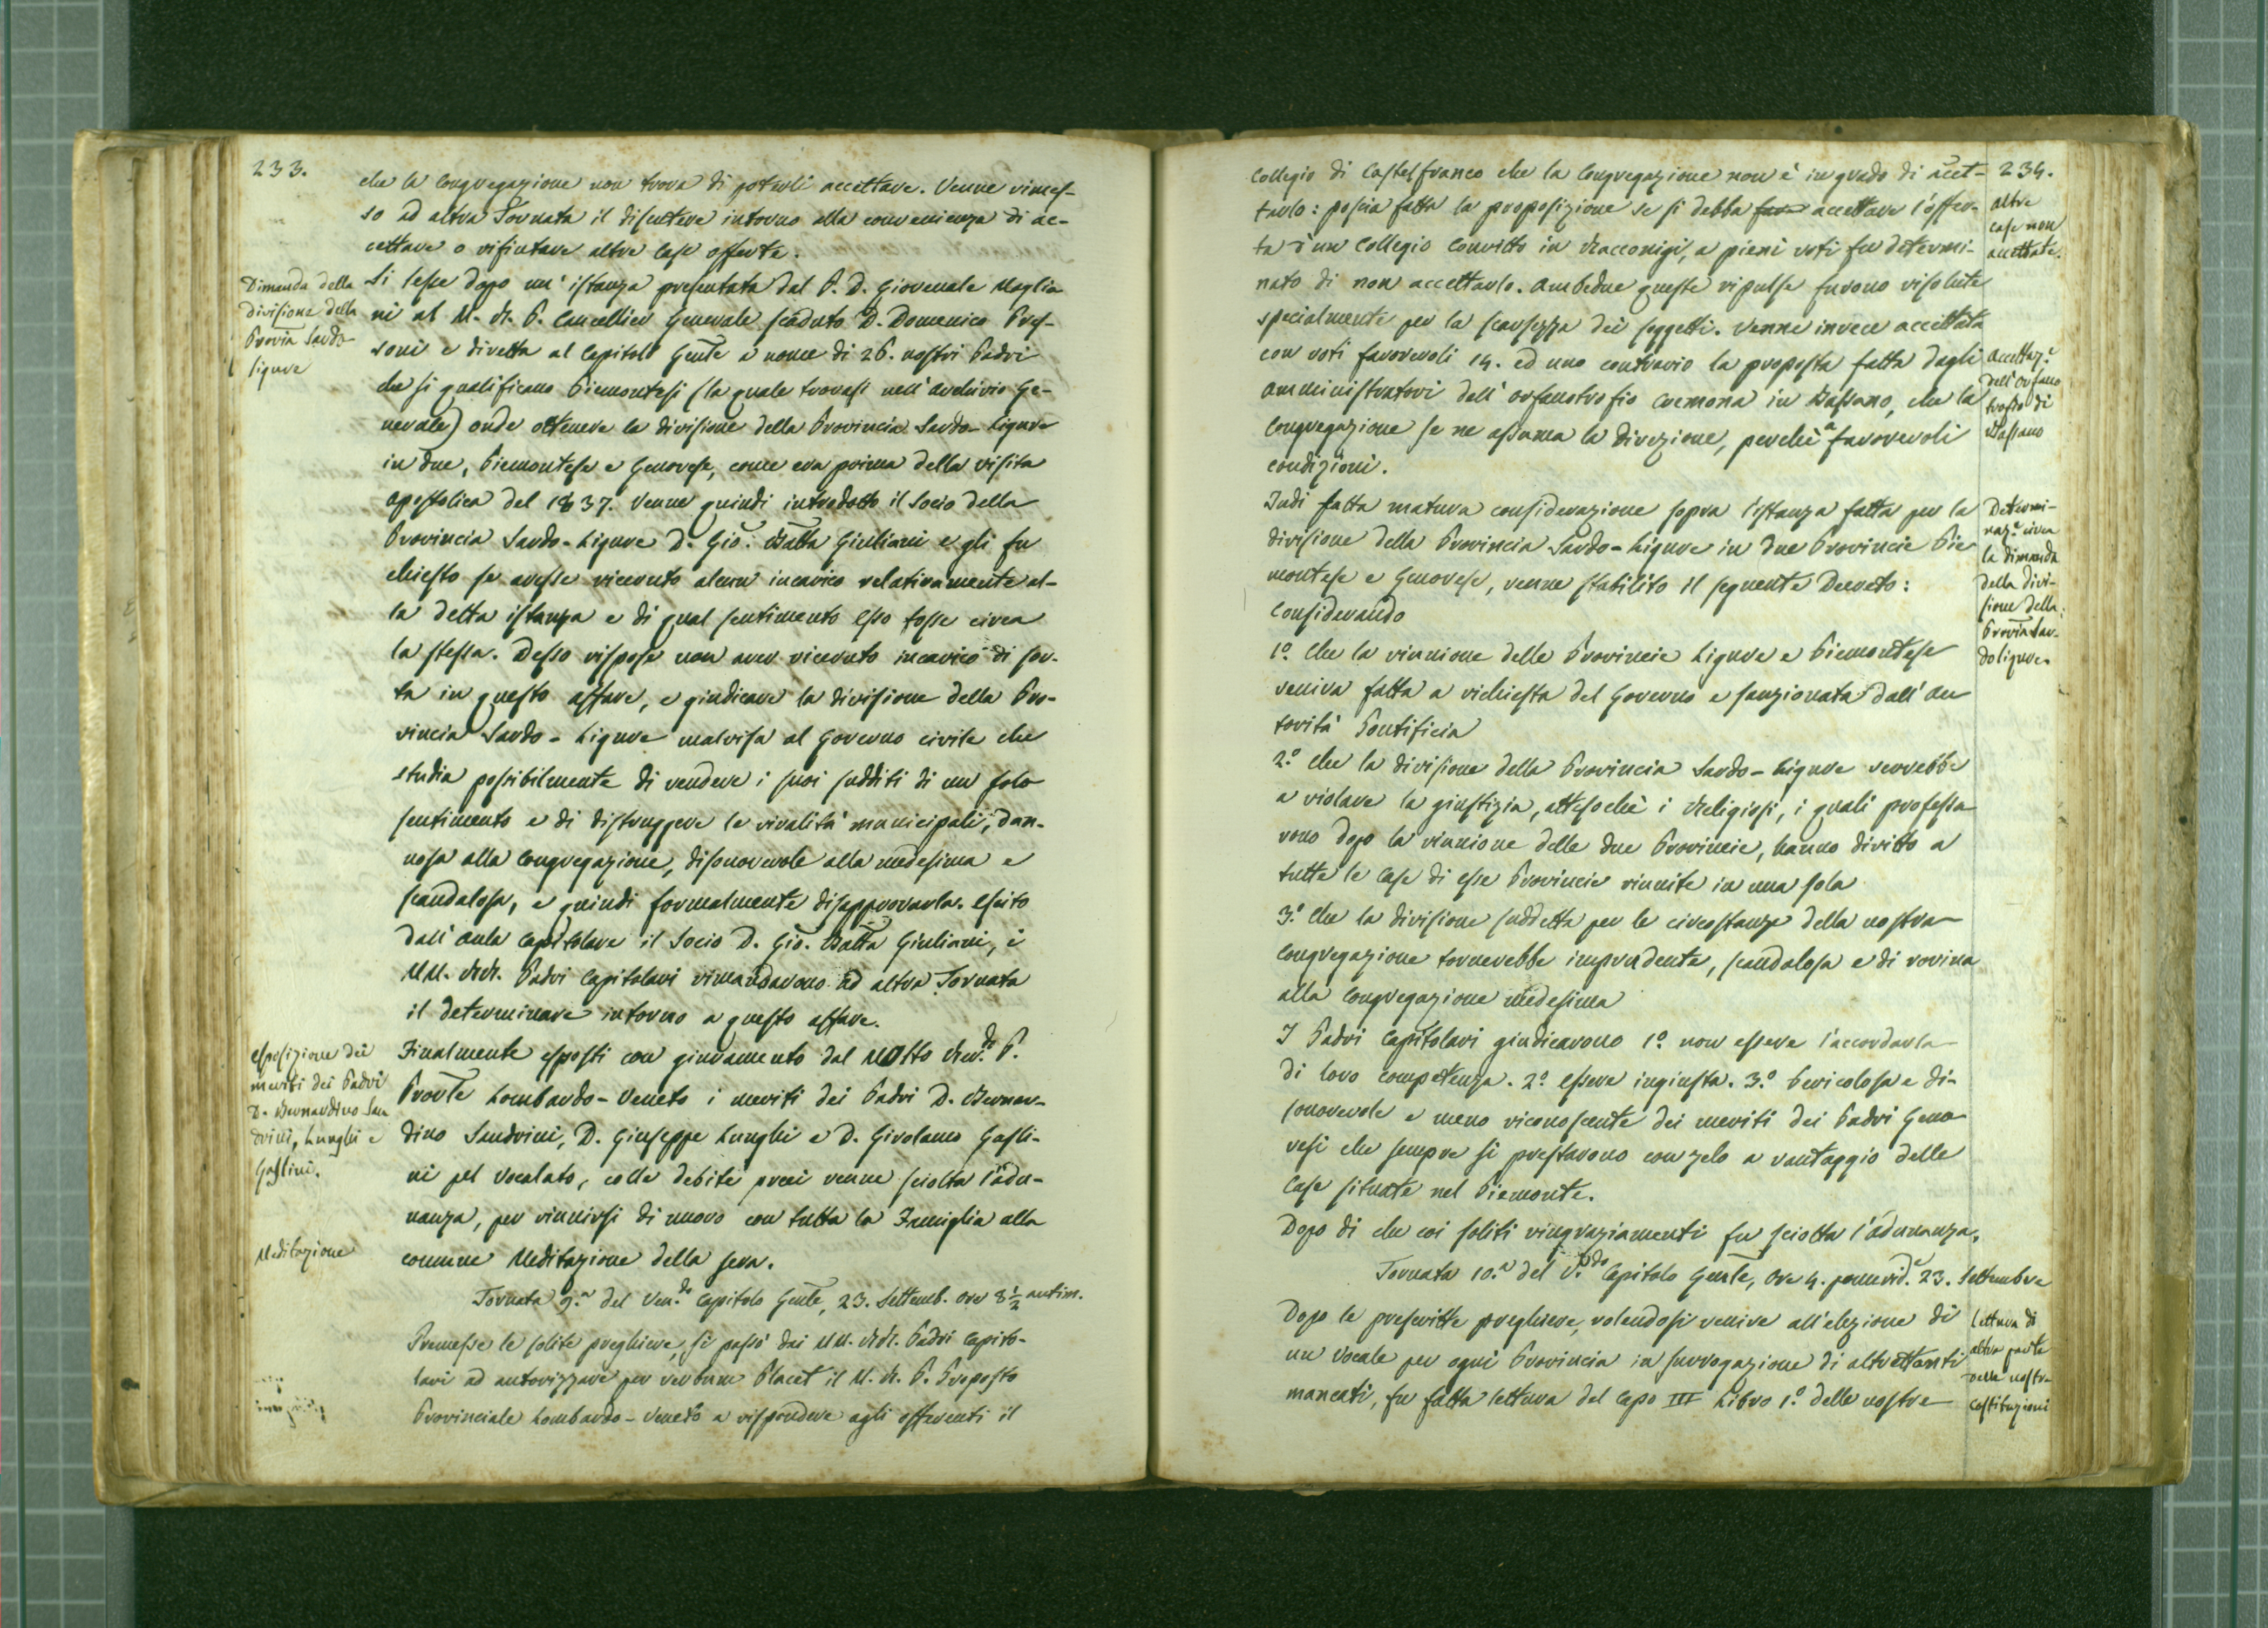 233.
che la Congregazione non trova di poterli accettare. Venne rimes-
so ad altra Tornata il discutere intorno alla convenienza di ac-
cettare o rifiutare altre Case offerte.
Dimanda della
divisione della
Provīa Sardo
ligure
Si lesse dopo un' istanza presentata dal P. D. Giovenale Maglia
ni al M. R. P. Cancellier Generale scaduto D. Domenico Pres-
soni e diretta al Capitolo Gen̄le a nome di 26. nostri Padri
che si qualificano Piemontesi (la quale trovasi nell' Archivio Ge-
nerale) onde ottenere la divisione della Provincia Sardo-Ligure
in due, Piemontese e Genovese, come era prima della visita
apostolica del 1837. Venne quindi introdotto il Socio della
Provincia Sardo-Ligure D. Gio. Batta Giuliani e gli fu
chiesto se avesse ricevuto alcun incarico relativamente al-
la detta istanza e di qual sentimento Esso fosse circa
la stessa. Desso rispose non aver ricevuto incarico di sor-
ta in questo affare, e giudicare la divisione della Pro-
vincia Sardo-Ligure malvisa al Governo civile che
studia possibilmente di rendere i suoi sudditi di un solo
sentimento e di distruggere le rivalità municipali, dan-
nosa alla Congregazione, disonorevole alla medesima e
scandalosa, e quindi formalmente disapprovarla. Escito
dall'Aula Capitolare il Socio D. Gio. Batta Giuliani, i
MM. RR. Padri Capitolari rimandarono ad altra Tornata
il determinare intorno a questo affare.
Esposizione dei
meriti dei Padri
D. Bernardino San
drini, Lunghi e
Gaslini.
Finalmente esposti con giuramento dal Molto Rev.do P.
Prov̄le Lombardo-Veneto i meriti dei Padri D. Bernar-
dino Sandrini, D. Giuseppe Lunghi e D. Girolamo Gasli-
ni pel Vocalato, colle debite preci venne sciolta l'adu-
nanza, per riunirsi di nuovo con tutta la Famiglia alla
Meditazione
comune Meditazione della sera.
Tornata 9.a del Ven.do Capitolo Gen̄le, 23. Settemb. ore 8 1/2 antim.
Premesse le solite preghiere, si passò dai MM. RR. Padri Capito-
lari ad autorizzare per verbum Placet il M. R. P. Preposto
Provinciale Lombardo-Veneto a rispondere agli offerenti il
234.
Collegio di Castelfranco che la Congregazione non è in grado di accet-
tarlo: poscia fatta la proposizione se si debba fare accettare l'offer-
ta d'un Collegio Convitto in Racconigi, a pieni voti fu determi-
nato di non accettarlo. Ambedue queste ripulse furono risolute
specialmente per la scarsezza dei soggetti. Venne invece accettata
con voti favorevoli 14. ed uno contrario la proposta fatta dagli
amministratori dell' orfanotrofio Cremona in Bassano, che la
Congregazione se ne assuma la direzione, perchè a favorevoli
condizioni.
altre
case non
accettate.
Accettaz.e
dell'Orfano
trofio di
Bassano
Indi fatta matura considerazione sopra l'istanza fatta per la
divisione della Provincia Sardo-Ligure in due Provincie Pie
montese e Genovese, venne stabilito il seguente Decreto:
Considerando
Determi-
naz.e circa
la dimanda
della divi-
sione della
Provīa Sar-
doligure.
1.o Che la riunione delle Provincie Ligure e Piemontese
veniva fatta a richiesta del Governo e sanzionata dall' Au
torità Pontificia
2.o che la divisione della Provincia Sardo-Ligure verrebbe
a violare la giustizia, attesochè i Religiosi, i quali professa
rono dopo la riunione delle due Provincie, hanno diritto a
tutte le Case di esse Provincie riunite in una sola
3.o Che la divisione suddetta per le circostanze della nostra
Congregazione tornerebbe imprudente, scandalosa e di rovina
alla Congregazione medesima
I Padri Capitolari giudicarono 1.o non essere l'accordarla
di loro competenza. 2.o Essere ingiusta. 3.o Pericolosa e di-
sonorevole e meno riconoscente dei meriti dei Padri Geno
vesi che sempre si prestarono con zelo a vantaggio delle
Case situate nel Piemonte.
Dopo di che coi soliti ringraziamenti fu sciolta l'adunanza.
Tornata 10.a del V.do Capitolo Gen̄le, Ore 4. pomerid.e 23. Settembre
Dopo le prescritte preghiere, volendosi venire all'elezione di
un Vocale per ogni Provincia in surrogazione di altrettanti
mancati, fu fatta lettura del Capo III Libro 1.o delle nostre
Lettura di
altra parte
delle nostre
Costituzioni